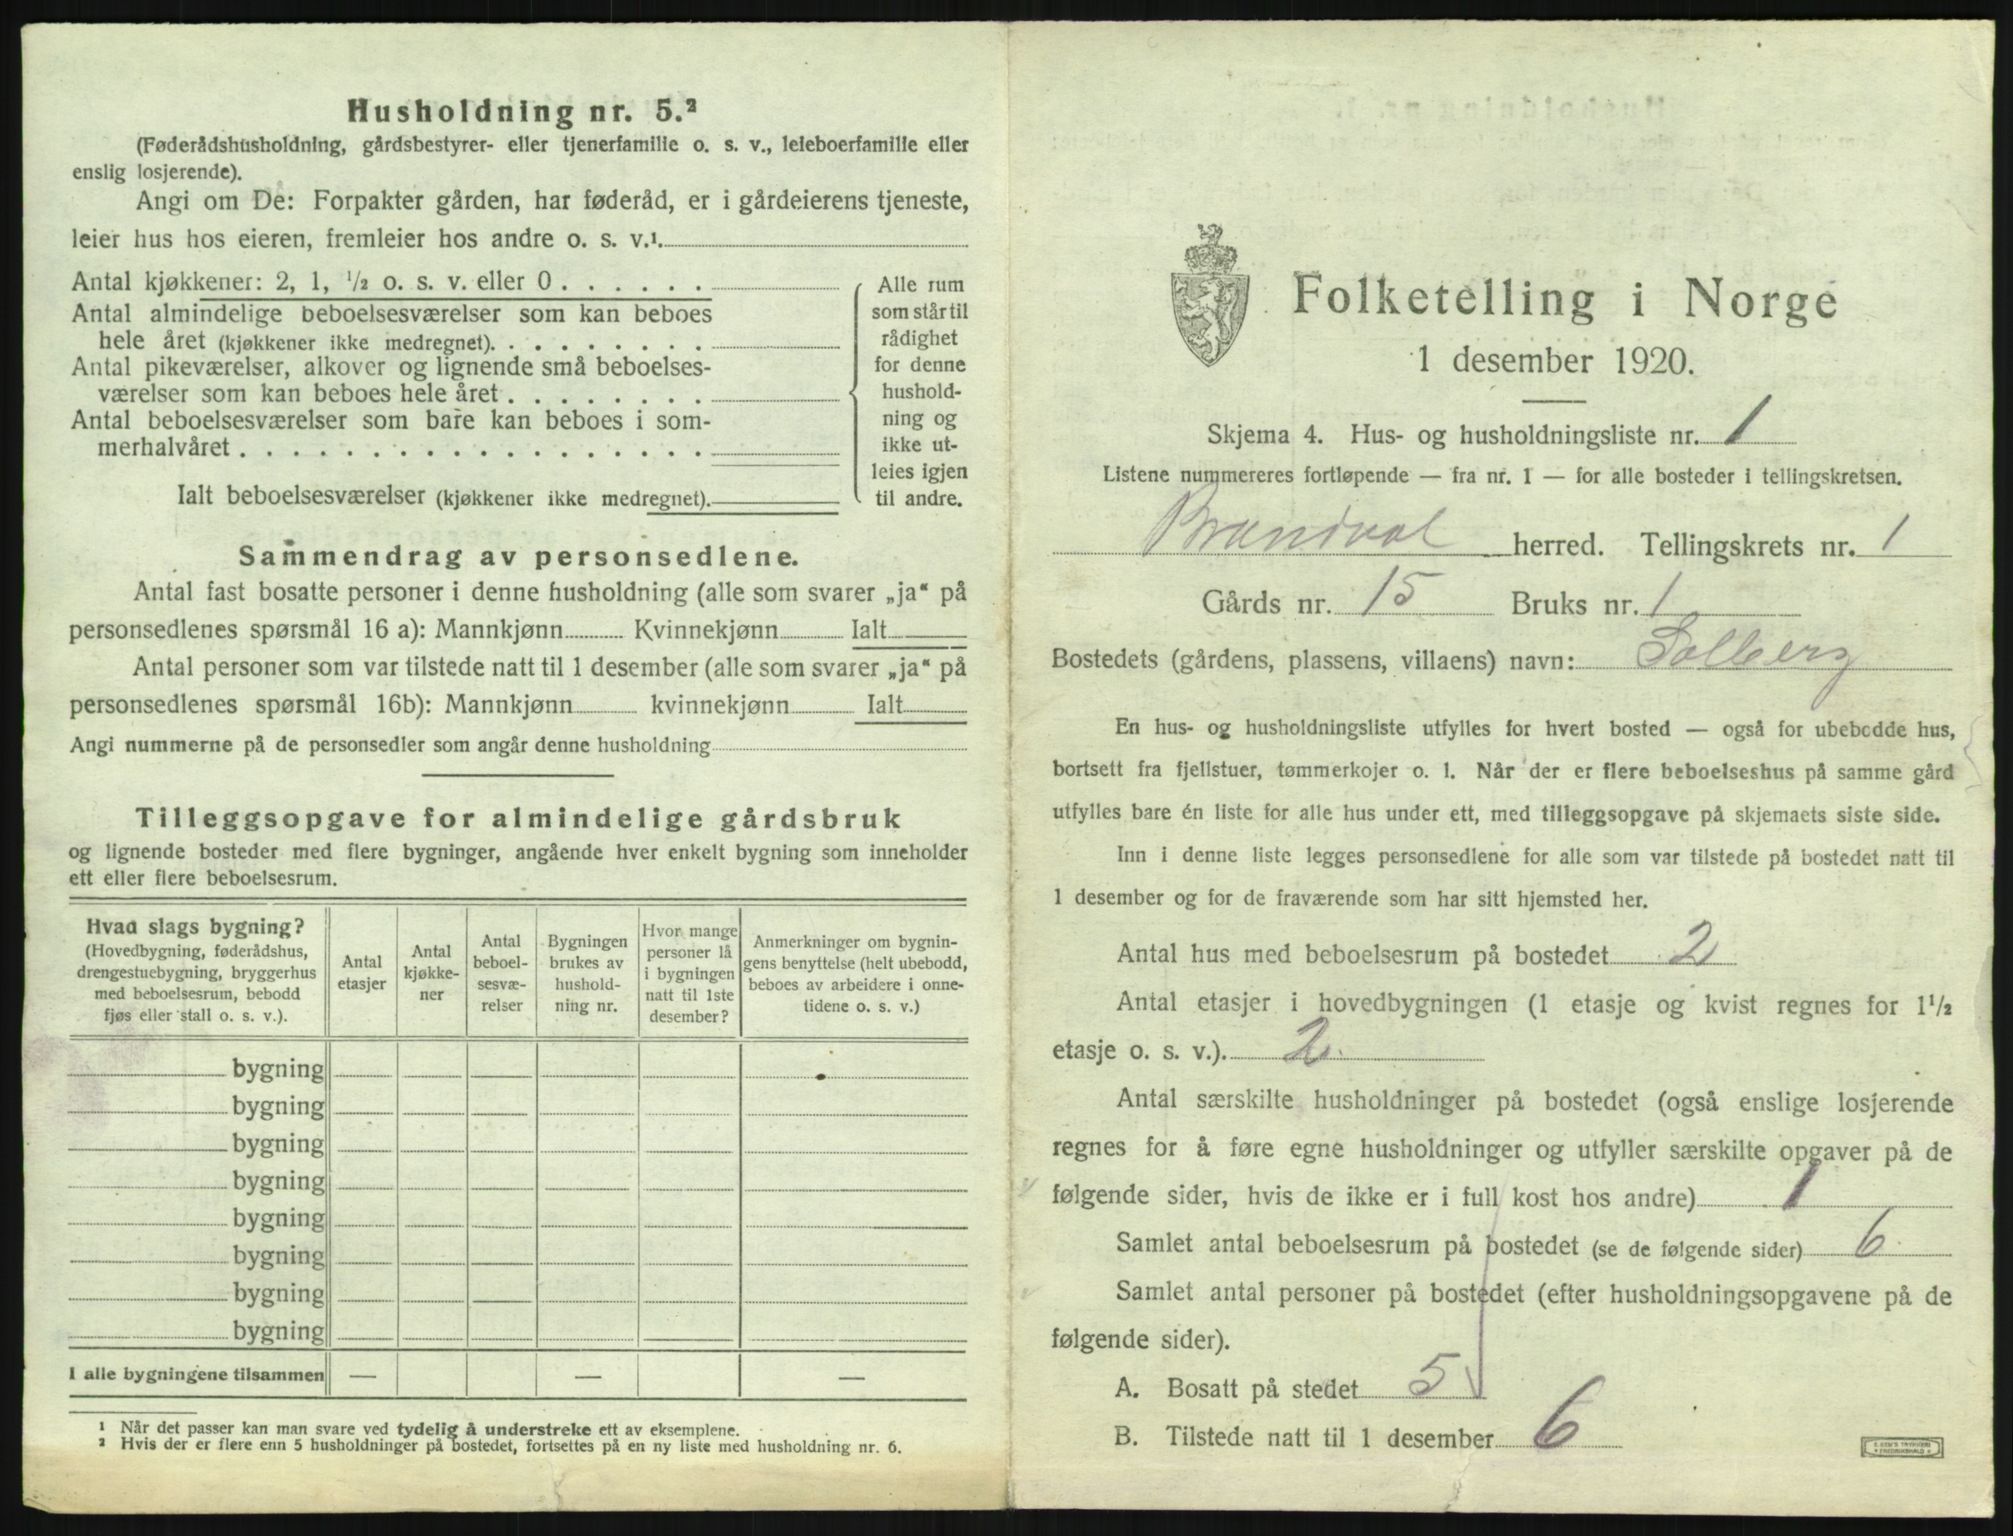 Husholdning nr. 5.²
(Føderådshusholdning, gårdsbestyrer- eller tjenerfamilie o. s. v., leieboerfamilie eller
enslig losjerende).
Angi om De: Forpakter gården, har føderåd, er i gårdeierens tjeneste,
leier hus hos eieren, fremleier hos andre o. s. v.¹
Antal kjøkkener: 2, 1, ½ o. s. v. eller 0 . . . . . .
Antal almindelige beboelsesværelser som kan beboes
hele året (kjøkkener ikke medregnet). . . . . . . . .
Antal pikeværelser, alkover og lignende små beboelses-
værelser som kan beboes hele året . . . . . . . .
Antal beboelsesværelser som bare kan beboes i som-
merhalvåret . . . . . . . . . . . . . . . . . .
Ialt beboelsesværelser (kjøkkener ikke medregnet).
Alle rum
som står til
rådighet
for denne
hushold-
ning og
ikke ut-
leies igjen
til andre.
Sammendrag av personsedlene.
Antal fast bosatte personer i denne husholdning (alle som svarer „ja“ på
personsedlenes spørsmål 16 a): Mannkjønn Kvinnekjønn Ialt
Antal personer som var tilstede natt til 1 desember (alle som svarer „ja“ på
personsedlenes spørsmål 16b): Mannkjønn kvinnekjønn Ialt
Angi nummerne på de personsedler som angår denne husholdning
Tilleggsopgave for almindelige gårdsbruk
og lignende bosteder med flere bygninger, angående hver enkelt bygning som inneholder
ett eller flere beboelsesrum.
Hvad slags bygning?
(Hovedbygning, føderådshus,
drengestuebygning, bryggerhus
med beboelsesrum, bebodd
fjøs eller stall o. s. v.).
Antal
etasjer
Antal
kjøkke-
ner
Antal
beboel-
sesvæ-
relser
Bygningen
brukes av
hushold-
ning nr.
Hvor mange
personer lå
i bygningen
natt til 1ste
desember?
Anmerkninger om bygnin-
gens benyttelse (helt ubebodd,
beboes av arbeidere i onne-
tidene o. s. v.)
bygning
bygning
bygning
bygning
bygning
bygning
bygning
bygning
I alle bygningene tilsammen — — —
¹ Når det passer kan man svare ved tydelig å understreke ett av eksemplene.
² Hvis der er flere enn 5 husholdninger på bostedet, fortsettes på en ny liste med husholdning nr. 6.
Folketelling i Norge
1 desember 1920.
Skjema 4. Hus- og husholdningsliste nr. 1
Listene nummereres fortløpende — fra nr. 1 — for alle bosteder i tellingskretsen.
Brandval herred. Tellingskrets nr. 1
Gårds nr. 15 Bruks nr. 1
Bostedets (gårdens, plassens, villaens) navn: Solberg
En hus- og husholdningsliste utfylles for hvert bosted — også for ubebodde hus,
bortsett fra fjellstuer, tømmerkojer o. l. Når der er flere beboelseshus på samme gård
utfylles bare én liste for alle hus under ett, med tilleggsopgave på skjemaets siste side.
Inn i denne liste legges personsedlene for alle som var tilstede på bostedet natt til
1 desember og for de fraværende som har sitt hjemsted her.
Antal hus med beboelsesrum på bostedet 2
Antal etasjer i hovedbygningen (1 etasje og kvist regnes for 1½
etasje o. s. v.). 2
Antal særskilte husholdninger på bostedet (også enslige losjerende
regnes for å føre egne husholdninger og utfyller særskilte opgaver på de
følgende sider, hvis de ikke er i full kost hos andre) 1
Samlet antal beboelsesrum på bostedet (se de følgende sider) 6
Samlet antal personer på bostedet (efter husholdningsopgavene på de
følgende sider).
A. Bosatt på stedet 5
B. Tilstede natt til 1 desember 6